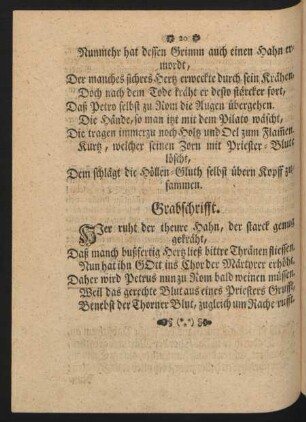 20
Nunmehr hat dessen Grimm auch einen Hahn er-
mordt,
Der manches sichres Hertz erweckte durch sein Krähen,
Doch nach dem Tode kräht er desto stärcker fort,
Daß Petro selbst zu Rom die Augen übergehen.
Die Hände, so man itzt mit dem Pilato wäscht,
Die tragen immerzu noch Holtz und Oel zum Flam̃en.
Kurtz, welcher seinen Zorn mit Priester-Blut
löscht,
Dem schlägt die Höllen-Gluth selbst übern Kopff zu-
sammen.
Grabschrifft.
HIer ruht der theure Hahn, der starck genug
gekräht,
Daß manch bußfertig Hertz ließ bittre Thränen fliessen.
Nun hat ihn GOtt ins Chor der Märtyrer erhöht,
Daher wird Petrus nun zu Rom bald weinen müssen.
Weil das gerechte Blut aus eines Priesters Grufft,
Benebst der Thorner Blut, zugleich um Rache rufft.
(*.*)